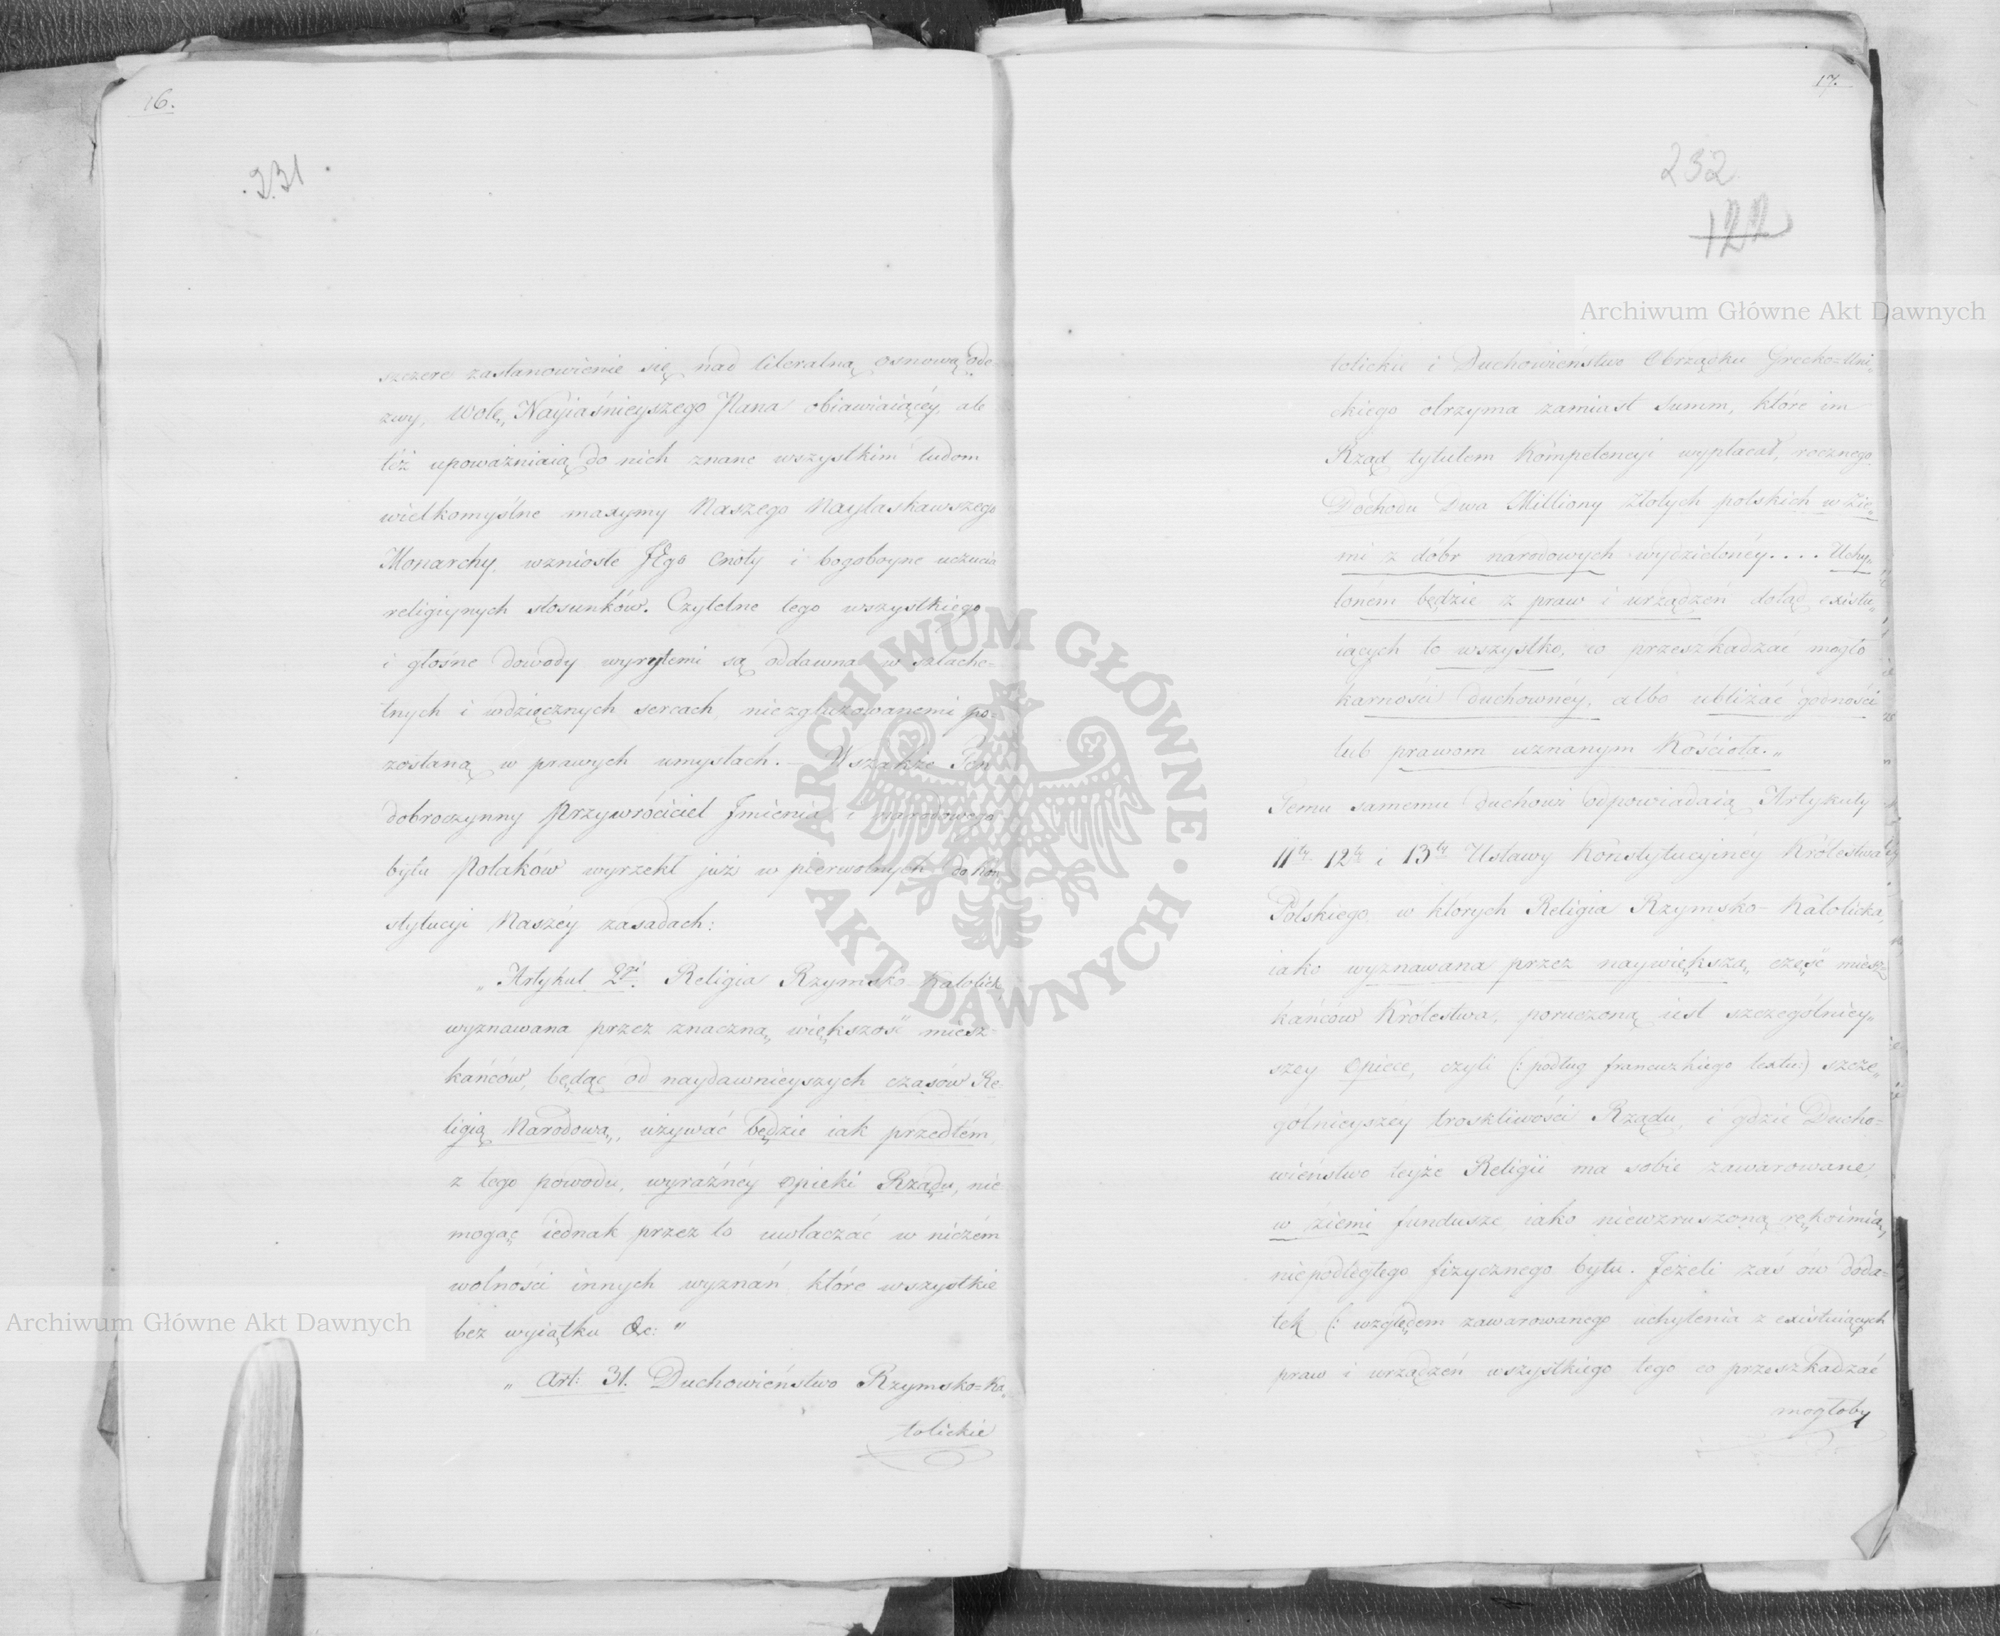 16.
.231.
szczere zastanowienie się nad literalną osnową ode-
zwy, Wolę Nayiaśnieyszego Pana obiawiaiącéy, ale
też upoważniaią do nich znane wszystkim ludom
wielkomyślne maxymy Naszego Naylaskawszego
Monarchy, wzniosłe JEgo Cnoty i bogoboyne uczucia
religiynych stosunków. Czytelne tego wszystkiego
i głośne dowody wyrytemi są oddawna w szlache-
tnych i wdzięcznych sercach, niezgluzowanemi po-
zostaną w prawych umysłach. — Wszakże Ten
dobroczynny Przywróciciel Imienia i narodowego
bytu Polaków wyrzekł już w pierwotnych do Kon
stytucyi Naszéy zasadach:
„Artykuł 2gi. Religia Rzymsko Katolick,
wyznawana przez znaczną większość miesz-
kańców, będąc od naydawnieyszych czasów Re-
ligią Narodową, używać będzie iak przedtém,
z tego powodu, wyraźnéy opieki Rządu, nie
mogąc iednak przez to uwłaczać w niczém
wolności innych wyznań, które wszystkie
bez wyiątku &c: "
„ Art: 31. Duchowieństwo Rzymsko=Ka„
tolickie
17.
232
122
Archiwum Główne Akt Dawnych
tolickie i Duchowieństwo Obrządku Grecko=Uni„
ckiego otrzyma zamiast summ, które im
Rząd tytułem Kompetencyi wypłacał, rocznego
Dochodu Dwa Milliony Złotych polskich w Zie„
mi z dóbr narodowych wydzielonéy.... Uchy„
loném będzie z praw i urządzeń dotąd existu„
iących to wszystko, co przeszkadzać mogło
karności duchownéy, albo ubliżać godności
lub prawom uznanym Kościoła.„
Temu samemu duchowi odpowiadaią Artykuły
11ty 12ty i 13ty Ustawy Konstytucyinéy Królestwa
Polskiego, w których Religia Rzymsko-Katolicka,
iako wyznawana przez naywiększą część miesz„
kańców Królestwa, poruczoną iest szczególniey„
szey Opiece, czyli (: podług francuzkiego textu:) szcze„
gólnieyszéy troskliwości Rządu, i gdzie Ducho=
wieństwo teyże Religii ma sobie zawarowane,
w ziemi fundusze iako niewzruszoną rękoimią,
niepodległego fizycznego bytu. Jeżeli zaś ów doda=
tek (: względem zawarowanego uchylenia z existuiących
praw i urządzeń wszystkiego tego co przeszkadzać
mogłoby
Archiwum Główne Akt Dawnych
ARCHIWUM GŁÓWNE · AKT DAWNYCH ·